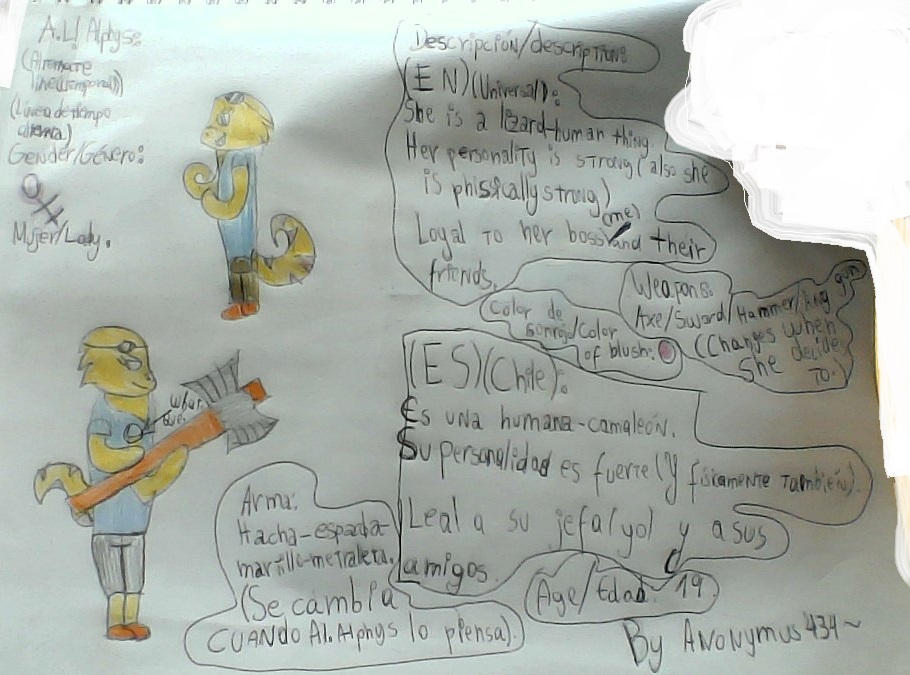 A.L! Alphys:
(Alternate
line(temporal))
(Línea de tiempo
alterna)
Gender/Género:
Mujer/Lady.
Descripción/description:
(EN)(Universal):
She is a lezard-human thing.
Her personality is strong (also she
is phissically strong)
(me)
Loyal to her boss and their
friends.
Weapons:
Axe/Sword/Hammer/ gun
(Changes when
she decide
to.
Color de
sonrojo/Color
of blush:
(ES)(Chile):
Es una humana-camaleón.
Su personalidad es fuerte (Y físicamente también).
Leal a su jefa(yo) y a sus
amigos.
Arma:
Hacha-espada-
martillo-metralleta.
(Se cambia
CUANDO Al.Alphys lo piensa).
Age/Edad: 19
By Anonymus434~